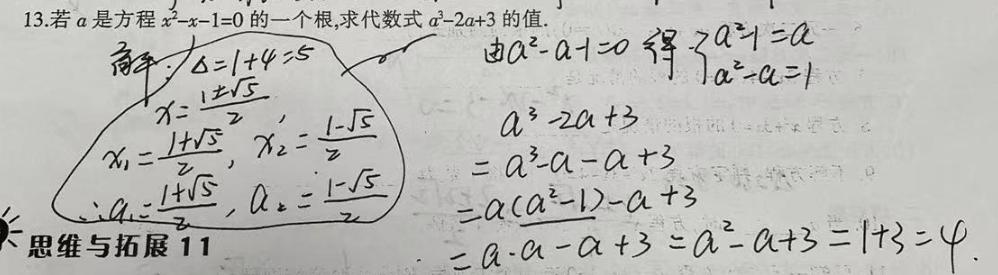 13.若 a 是方程 x²-x-1=0 的一个根,求代数式 a³-2a+3 的值.
解: Δ=1+4=5
x=\frac{1±√5}{2},
x₁=\frac{1+√5}{2}, x₂=\frac{1-√5}{2}
∴a₁=\frac{1+√5}{2}, a₂=\frac{1-√5}{2}
由a²-a-1=0 得 {a²-1=a
a²-a=1
a³-2a+3
=a³-a-a+3
=a(a²-1)-a+3
=a·a-a+3=a²-a+3=1+3=4.
思维与拓展 11